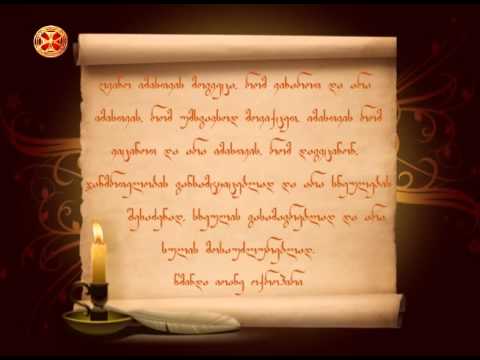 ღვინო იმისთვის მოგვეცა, რომ ვიხაროთ და არა
იმისთვის, რომ უმსგავსოდ მოვიქცეთ, იმისთვის რომ
ვიცინოთ და არა იმისთვის, რომ დაგვცინონ,
ჯანმრთელობის განსამტკიცებლად და არა სნეულების
შესაძენად, სხეულის გასამაგრებლად და არა
სულის მოსაუძლურებლად.
წმინდა იოანე ოქროპირი